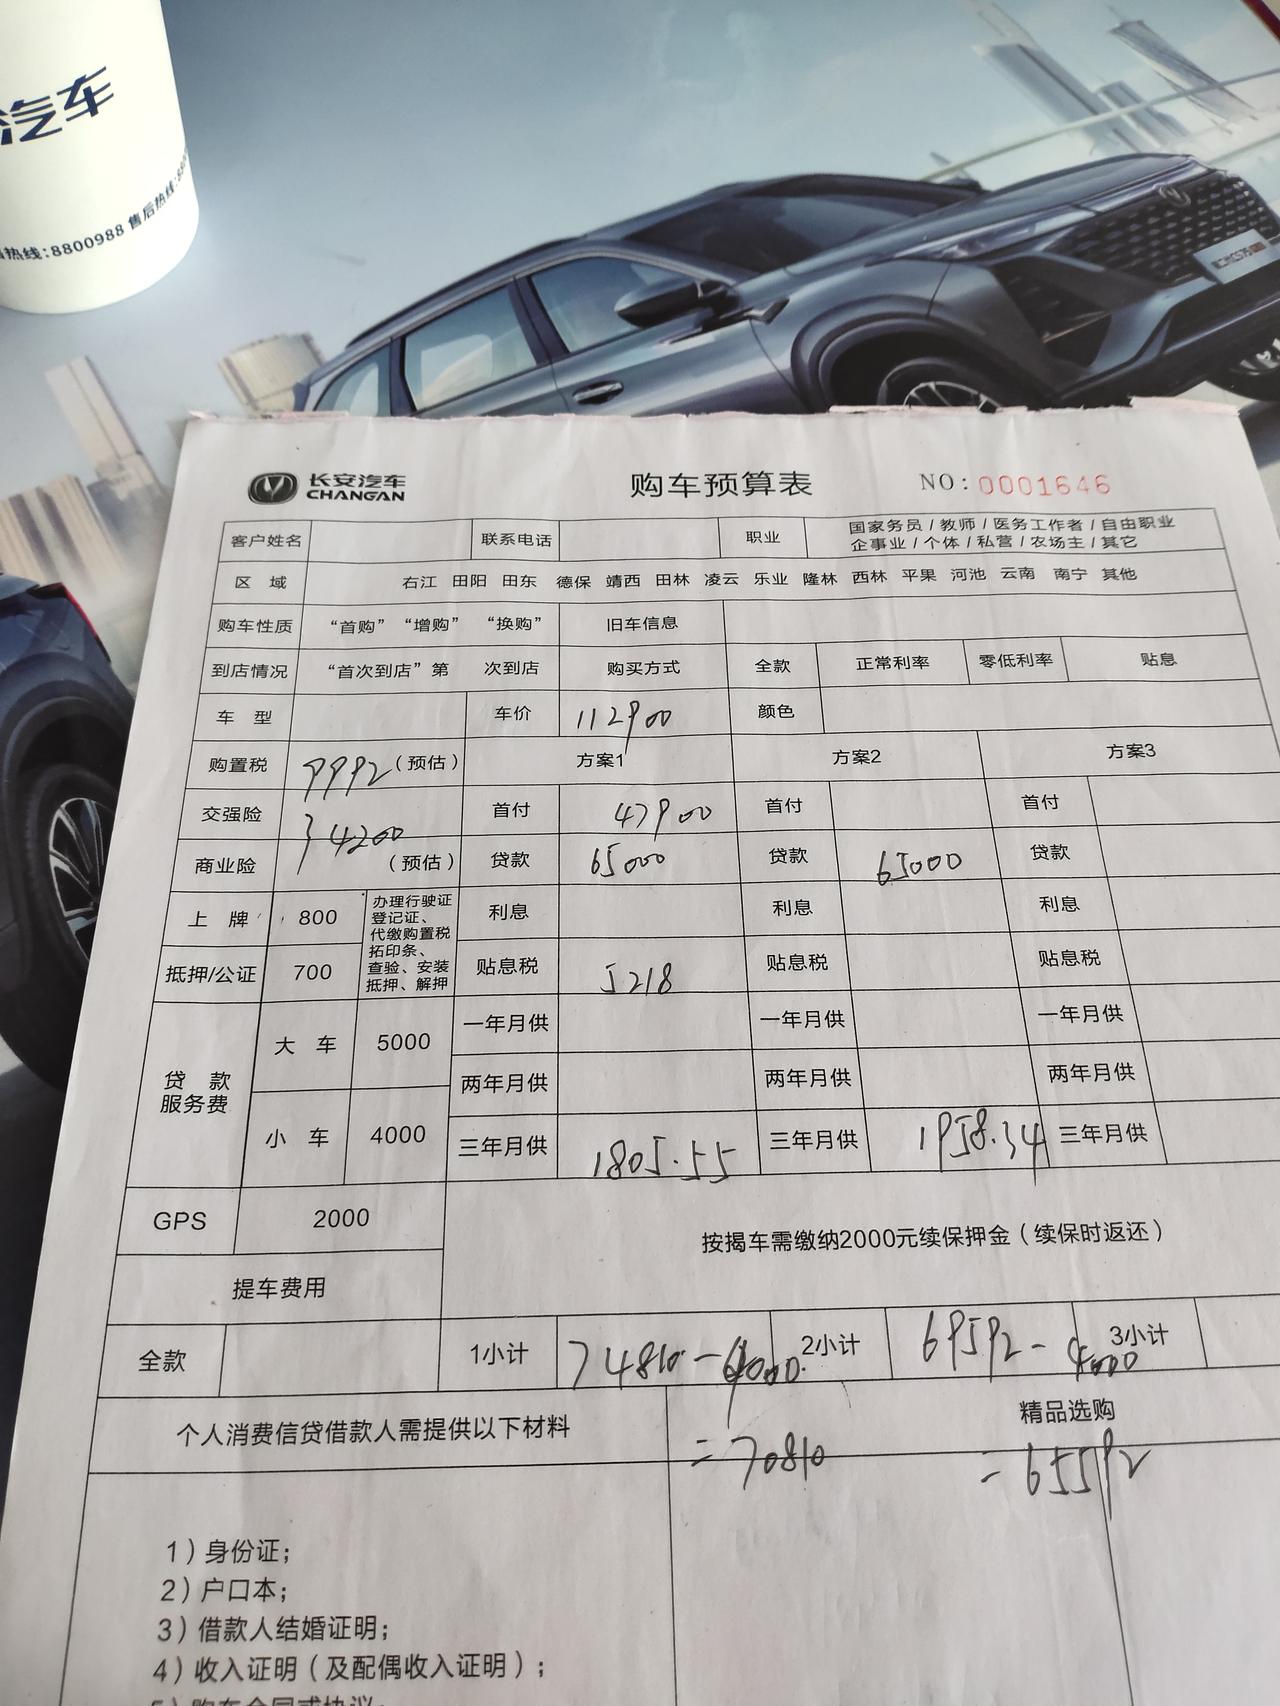 汽车
热线:8800988 售后热线:880
长安汽车
CHANGAN
购车预算表
NO: 0001646
客户姓名 联系电话 职业 国家务员 / 教师 / 医务工作者 / 自由职业
企事业 / 个体 / 私营 / 农场主 / 其它
区 域 右江 田阳 田东 德保 靖西 田林 凌云 乐业 隆林 西林 平果 河池 云南 南宁 其他
购车性质 “首购” “增购” “换购” 旧车信息
到店情况 “首次到店” 第 次到店 购买方式 全款 正常利率 零低利率 贴息
车 型 车价 112900 颜色
购置税 9992 (预估) 方案1 方案2 方案3
交强险 首付 47900 首付 首付
4200
商业险 (预估) 贷款 65000 贷款 65000 贷款
上 牌 800 办理行驶证
登记证、
代缴购置税
拓印条、
查验、安装
抵押、解押
利息 利息 利息
抵押/公证 700 贴息税 5218 贴息税 贴息税
贷 款
服务费
大 车 5000 一年月供 一年月供 一年月供
两年月供 两年月供 两年月供
小 车 4000 三年月供 1805.55 三年月供 1958.34 三年月供
GPS 2000 按揭车需缴纳2000元续保押金（续保时返还）
提车费用
全款 1小计 74810-4000. 2小计 69592-4000 3小计
个人消费信贷借款人需提供以下材料 精品选购
=70810 =65592
1）身份证；
2）户口本；
3）借款人结婚证明；
4）收入证明（及配偶收入证明）；
5）购车合同或协议；